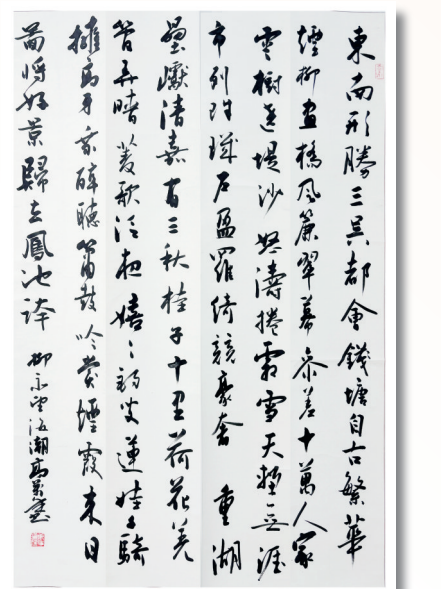 東南形勝三吳都會錢塘自古繁華
煙柳畫橋風簾翠幕參差十萬人家
雲樹遶堤沙怒濤捲霜雪天塹無涯
市列珠璣戶盈羅綺競豪奢 重湖
疊巘清嘉有三秋桂子十里荷花羌
管弄晴菱歌泛夜嬉〻釣叟蓮娃千騎
擁高牙乘醉聽簫鼓吟賞煙霞来日
圖將好景歸去鳳池誇 柳永望海潮